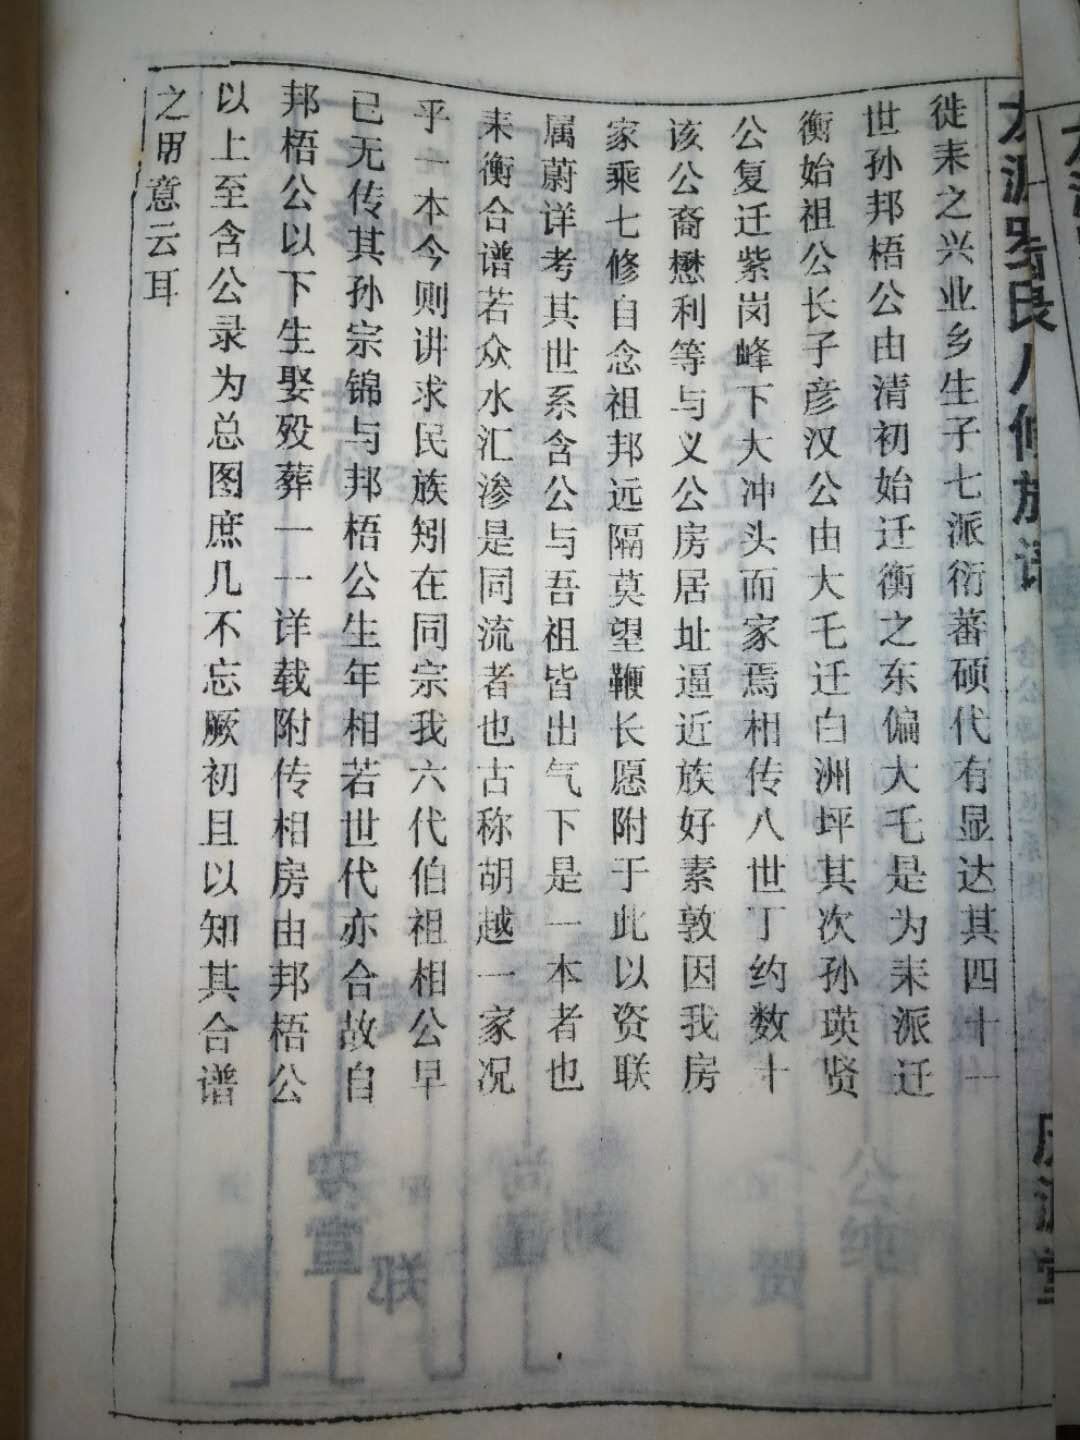 徙耒之兴业乡生子七派衍蕃硕代有显达其四十一
世孙邦梧公由清初始迁衡之东偏大毛是为耒派迁
衡始祖公长子彦汉公由大毛迁白洲坪其次孙瑛贤
公复迁紫岗峰下大冲头而家焉相传八世丁约数十
该公裔懋利等与义公房居址逼近族好素敦因我房
家乘七修自念祖邦远隔莫望鞭长愿附于此以资联
属蔚详考其世系含公与吾祖皆出气下是一本者也
耒衡合谱若众水汇渗是同流者也古称胡越一家况
乎一本今则讲求民族矧在同宗我六代伯祖相公早
已无传其孙宗锦与邦梧公生年相若世代亦合故自
邦梧公以下生娶殁葬一一详载附传相房由邦梧公
以上至含公录为总图庶几不忘厥初且以知其合谱
之用意云耳